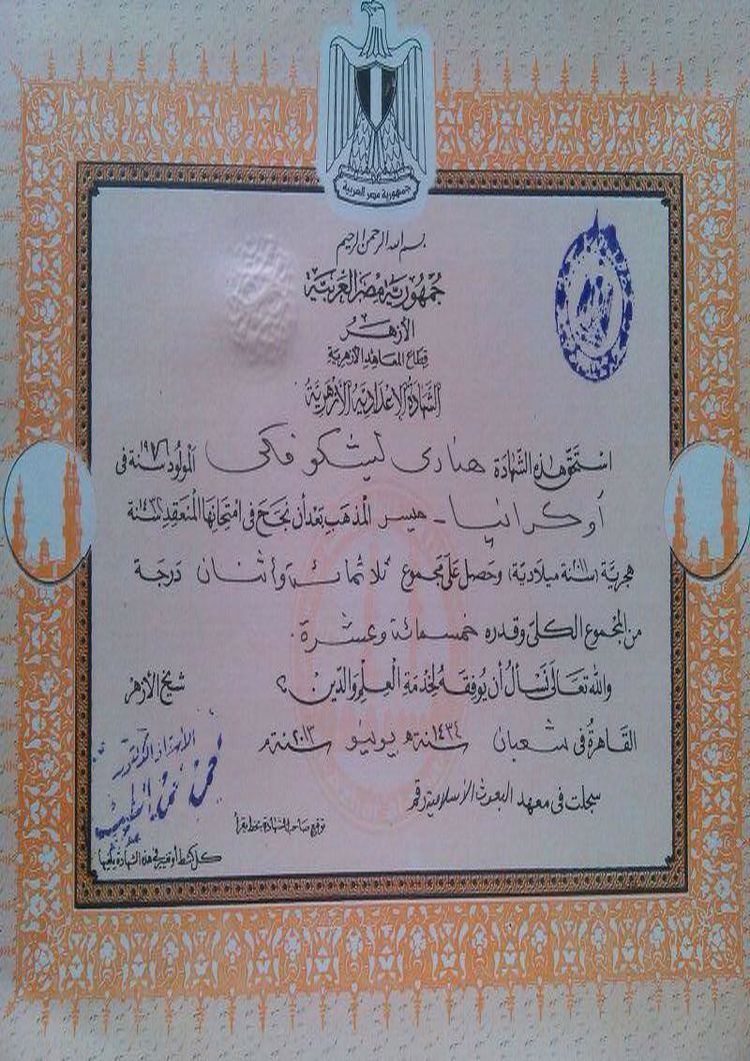 جمهورية مصر العربية
بسم الله الرحمن الرحيم
جمهورية مصر العربية
الأزهر
قطاع المعاهد الأزهرية
الشهادة الإعدادية الأزهرية
استحق هذه الشهادة هادى ليتكوفكى المولود سنة ١٩٧٦ فى
أوكرانيا - ميسر المذهب بعد أن نجح فى امتحانها المنعقد سنة ١٤٣٢
هجرية (٢٠١١ سنة ميلادية) وحصل على مجموع ثلاثمائة وأثنان درجة
من المجموع الكلى وقدره خمسمائة وعشرة.
والله تعالى نسأل أن يوفقه لخدمة العلم والدين
شيخ الأزهر
القاهرة فى شعبان سنة ١٤٣٤ هـ يونيو سنة ٢٠١٣ م
الأستاذ الدكتور
سجلت فى معهد البعوث الإسلامية رقم
توقيع صاحب الشهادة بخط يقرأ
كل كشط أو تغيير فى هذه الشهادة يلغيها